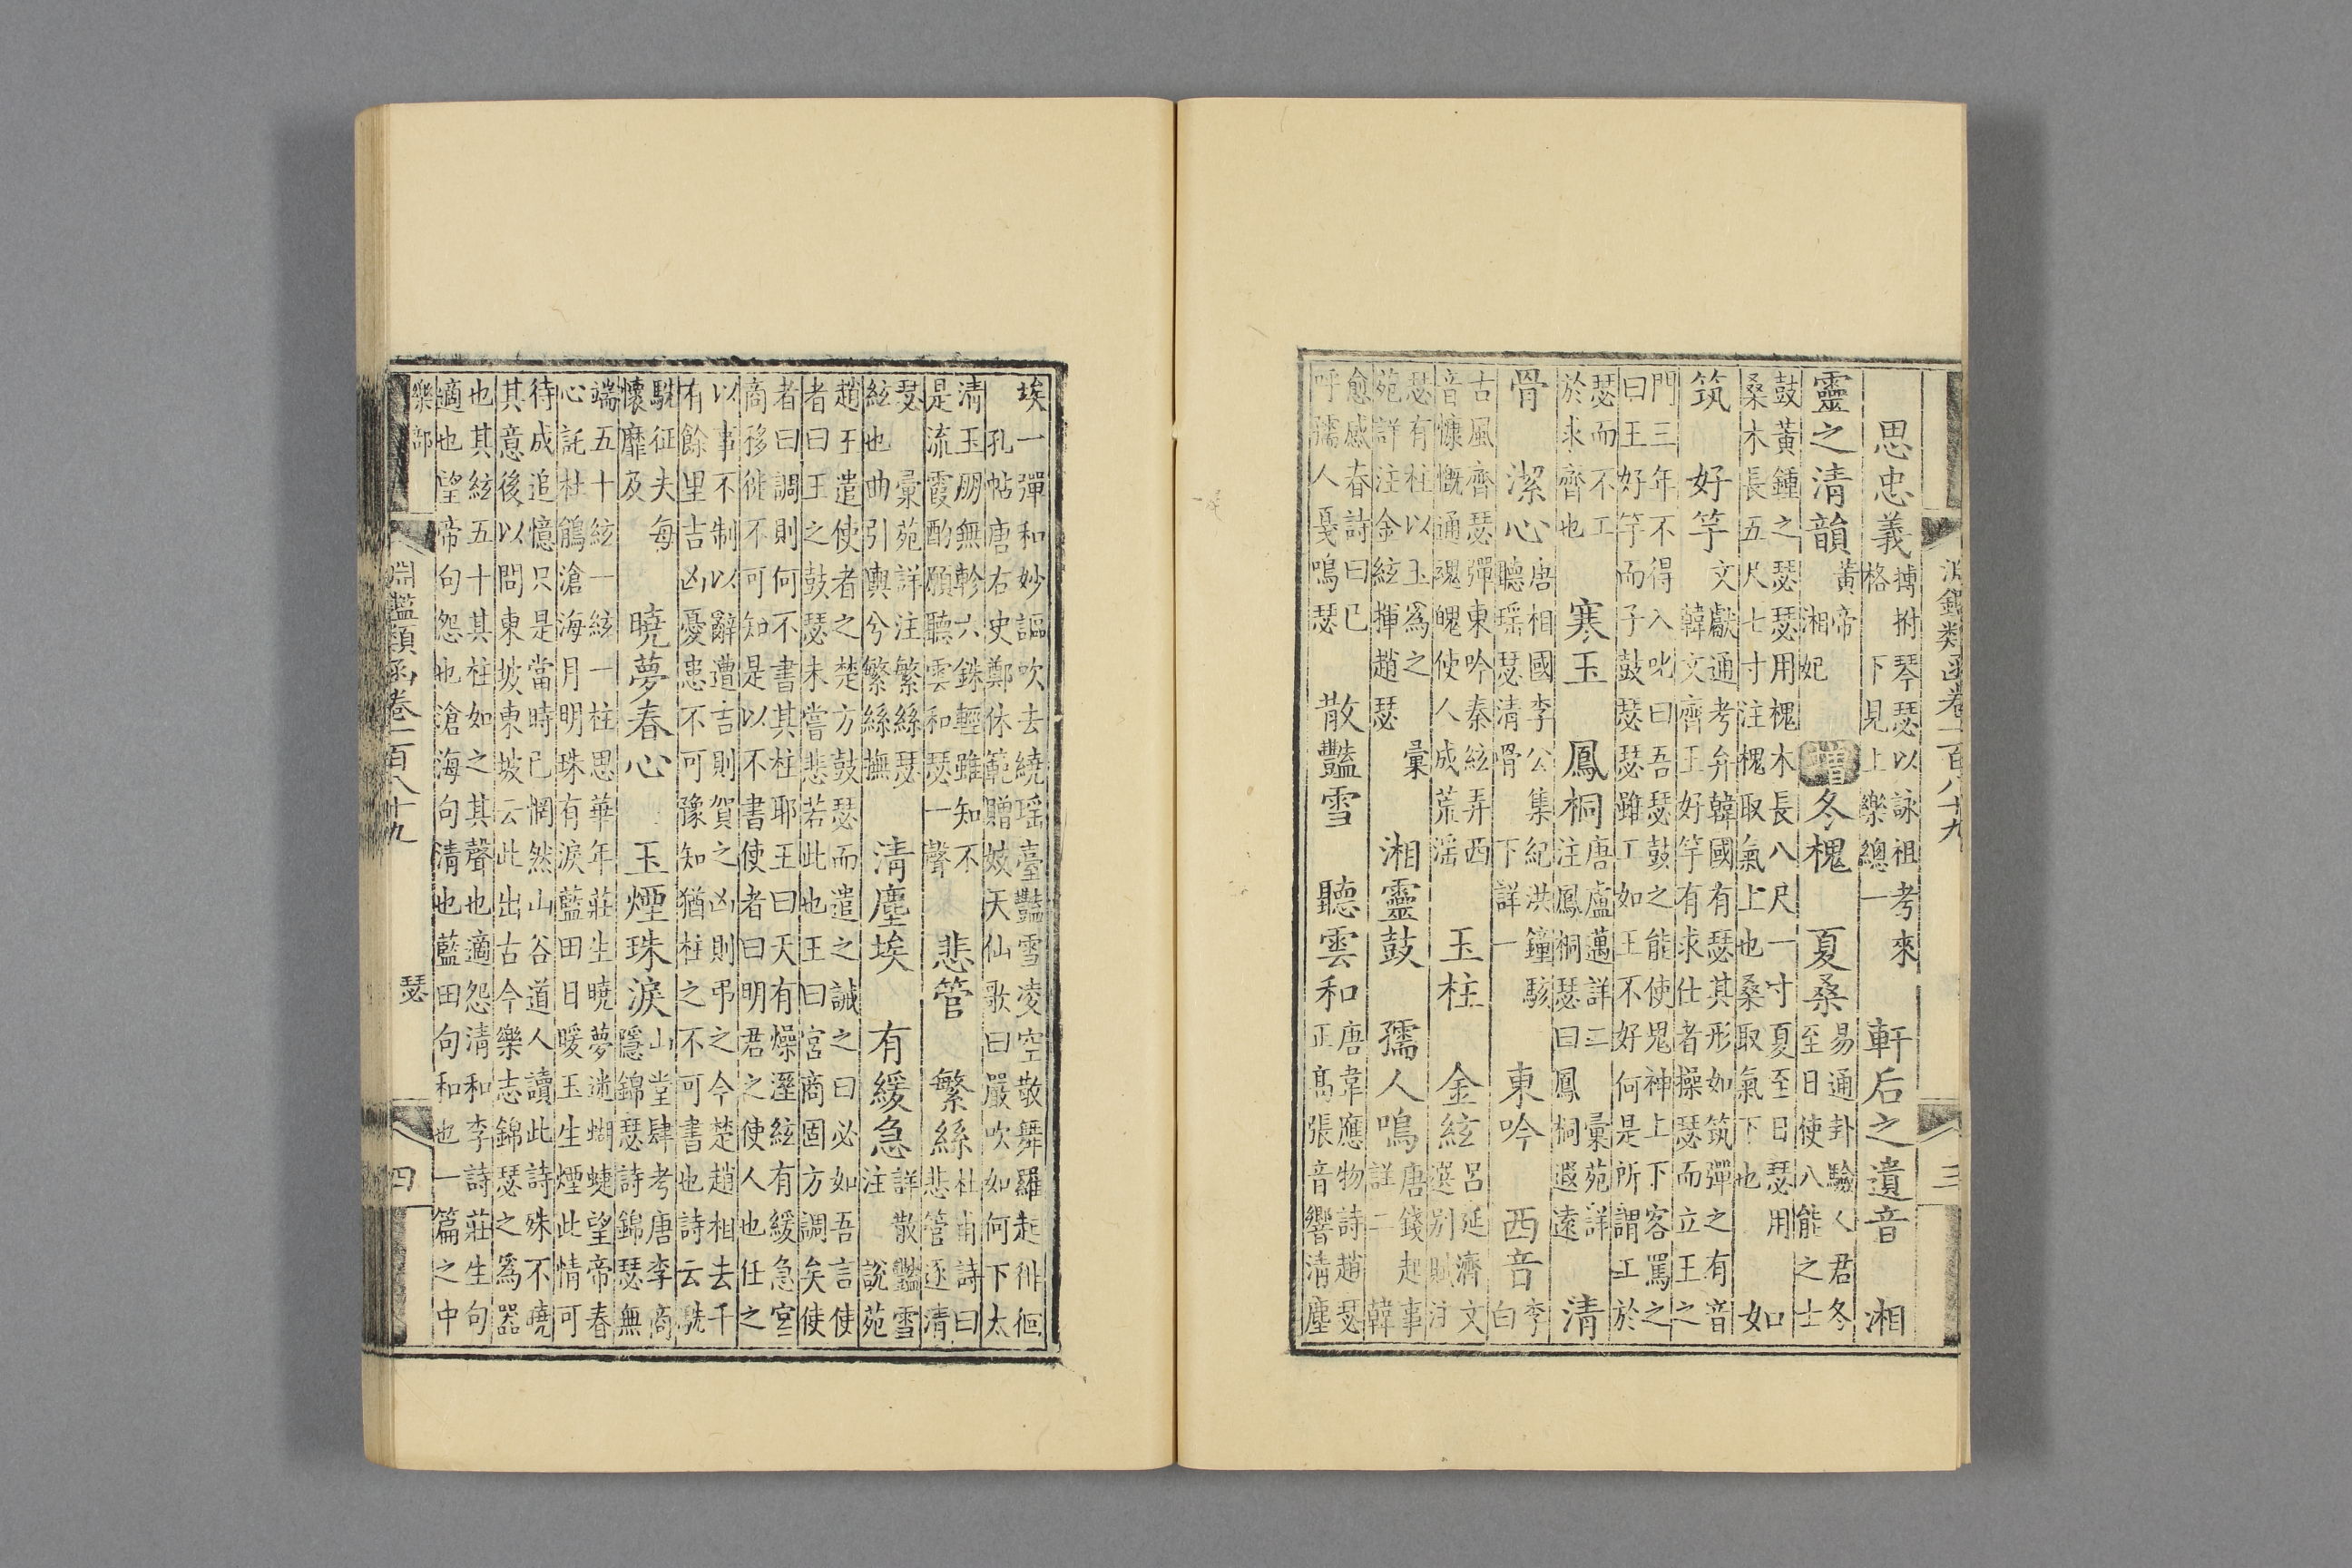 淵鑑類函卷一百八十九 三
思忠義 搏拊琴瑟以詠祖考來
格 下見上樂總一 軒后之遺音 湘
靈之清韻 黃帝
湘妃 增 冬槐 夏桑 易通卦驗人君冬
至日使八能之士
鼓黃鍾之瑟瑟用槐木長八尺一寸夏至日瑟用
桑木長五尺七寸注槐取氣上也桑取氣下也 如
筑 好竽 文獻通考弁韓國有瑟其形如筑彈之有音
韓文齊王好竽有求仕者操瑟而立王之
門三年不得入叱曰吾瑟鼓之能使鬼神上下客罵之
曰王好竽而子鼓瑟瑟雖工如王不好何是所謂工於
瑟而不工
於求齊也 寒玉 鳳桐 唐盧邁詳二 彙苑詳
注鳳桐瑟曰鳳桐遐遠 清
骨 潔心 唐相國李公集紀洪鐘駭
聽瑶瑟清骨 下詳一 東吟 西音 李
白
古風齊瑟彈東吟秦絃弄西
音慷慨通魂魄使人成荒淫 玉柱 金絃 呂延濟文
選別賦注
瑟有柱以玉爲之 彙
苑詳注金絃揮趙瑟 湘靈鼓 孺人鳴 唐錢起事
詳二 韓
愈感春詩曰已
呼孺人戛鳴瑟 散豔雪 聽雲和 唐韋應物詩趙瑟
正高張音響清塵
埃一彈和妙謳吹去繞瑶臺豔雪凌空散舞羅起徘徊
孔帖唐右史鄭休範贈妓天仙歌曰嚴吹如何下太
清玉朋無軫六銖輕雖知不
是流霞酌願聽雲和瑟一聲 悲管 繁絲 杜甫詩曰
悲管逐清
瑟 彙苑詳注繁絲瑟
絃也曲引輿兮繁絲撫 清塵埃 有緩急 詳散豔雪
注 說苑
趙王遣使者之楚方鼓瑟而遣之誡之曰必如吾言使
者曰王之鼓瑟未嘗悲若此也王曰宮商固方調矣使
者曰調則何不書其柱耶王曰天有燥溼絃有緩急宮
商移徙不可知是以不書使者曰明君之使人也任之
以事不制以辭遭吉則賀之凶則弔之今楚趙相去千
有餘里吉凶憂患不可豫知猶柱之不可書也詩云駪
駪征夫每
懷靡及 曉夢春心 玉煙珠淚 山堂肆考唐李商
隱錦瑟詩錦瑟無
端五十絃一絃一柱思華年莊生曉夢迷蝴蝶望帝春
心託杜鵑滄海月明珠有淚藍田日暖玉生煙此情可
待成追憶只是當時已惘然山谷道人讀此詩殊不曉
其意後以問東坡東坡云此出古今樂志錦瑟之爲器
也其絃五十其柱如之其聲也適怨清和李詩莊生句
適也望帝句怨也滄海句清也藍田句和也一篇之中
樂部 瑟
淵鑑類函卷一百八十九 四